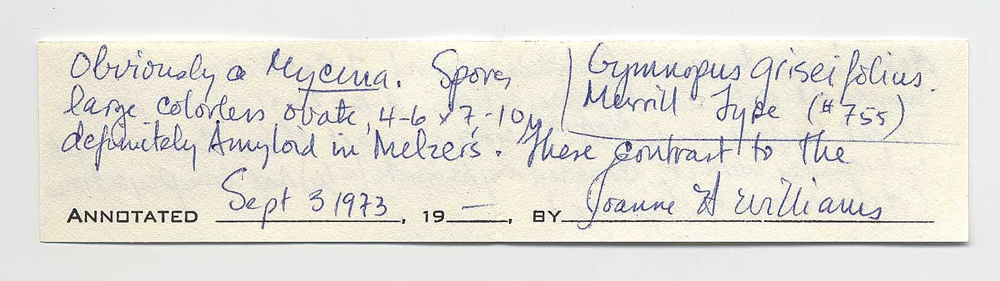 Obviously a Mycena. Spores
large colorless ovate, 4-6 x 7-10µ
definitely Amyloid in Melzers. These contrast to the
Gymnopus griseifolius.
Murrill Type (#755)
ANNOTATED Sept 3 1973, 19—, BY Joanne H Williams